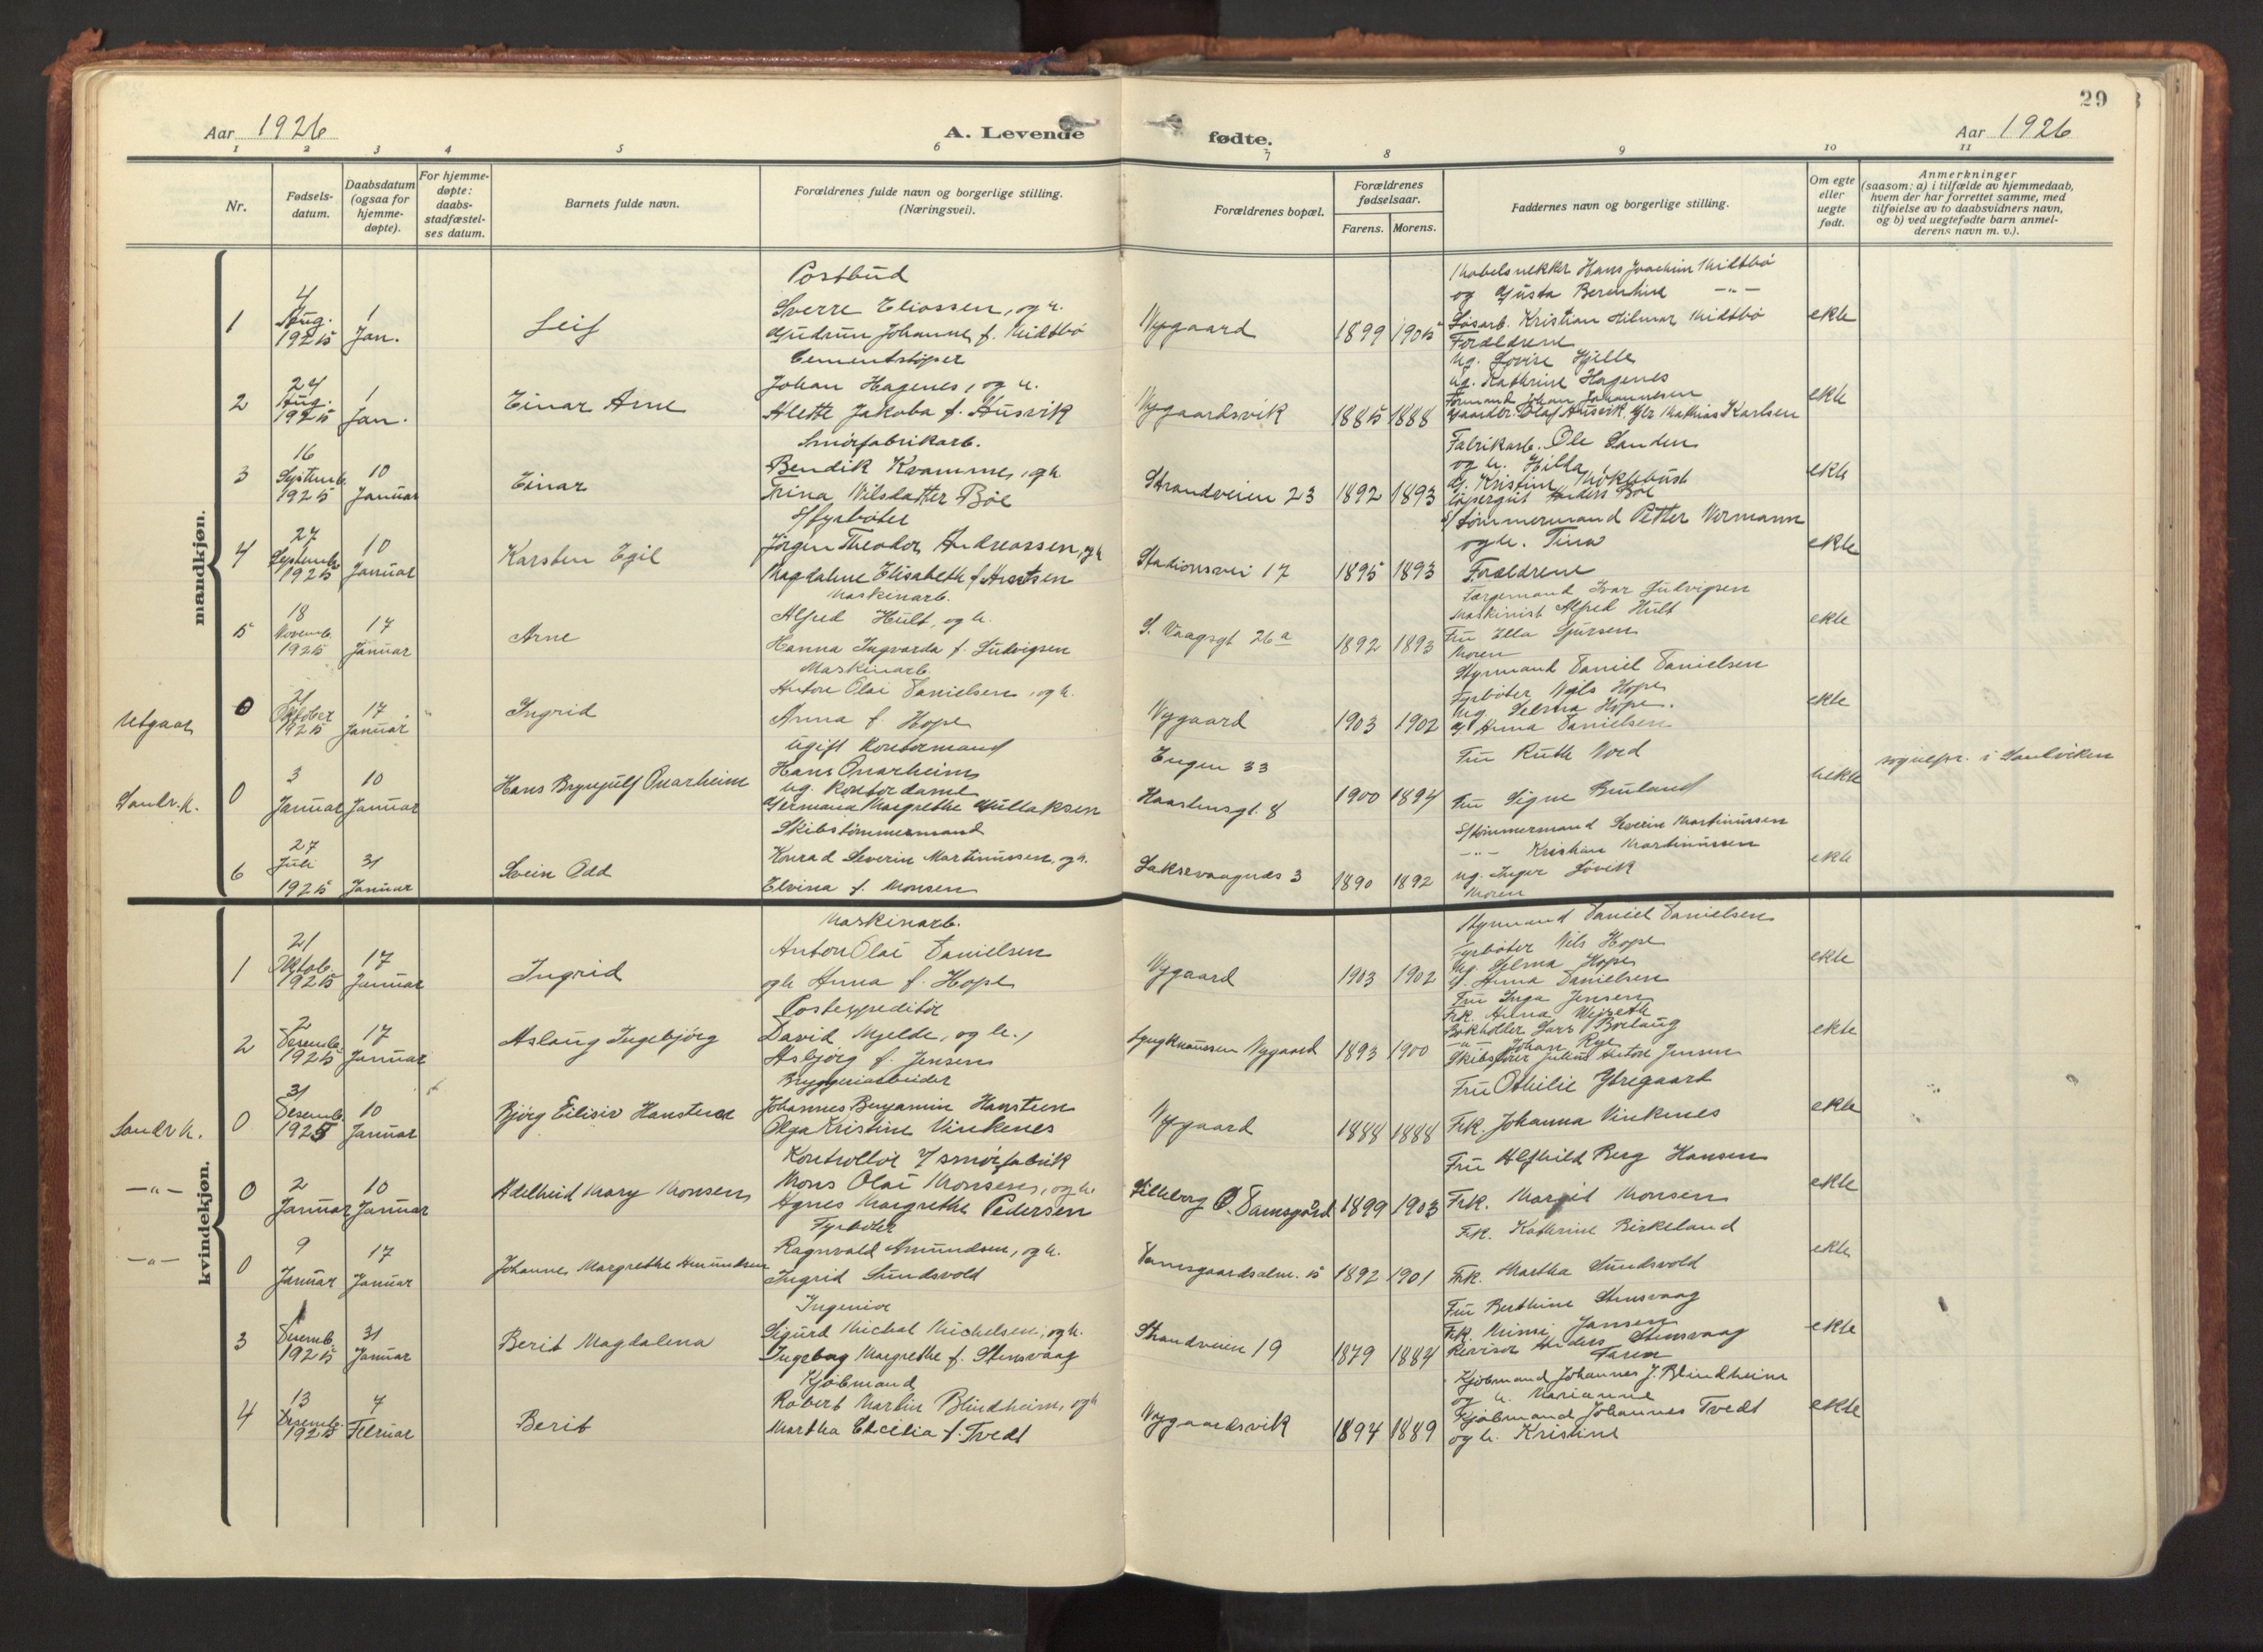 29
Aar 1926
A. Levende
fødte.
Aar 1926
1 2 3 4 5 6 7 8 9 10 11
Nr.
Fødsels-
datum.
Daabsdatum
(ogsaa for
hjemme-
døpte).
For hjemme-
døpte:
daabs-
stadfæstel-
ses datum.
Barnets fulde navn.
Forældrenes fulde navn og borgerlige stilling.
(Næringsvei).
Forældrenes bopæl.
Forældrenes
fødselsaar.
Farens. Morens.
Faddernes navn og borgerlige stilling.
Om egte
eller
uegte
født.
Anmerkninger
(saasom: a) i tilfælde av hjemmedaab,
hvem der har forrettet samme, med
tilføielse av to daabsvidners navn,
og b) ved uegtefødte barn anmel-
derens navn m. v.).
mandkjøn.
1
4
Aug.
1925
1
Jan.
Leif
Postbud
Sverre Eliassen, og h.
Gudrun Johanne f. Midtbø
Nygaard
1899 1905
Møbelsnekker Hans Joachim Midtbø
og Gusta Berentine -"-
Løsarb. Kristian Hilmar Midtbø
Forældrene
ekte
2
24
Aug.
1925
1
Jan.
Einar Arne
Cementstøper
Johan Hagenes, og h.
Alette Jakoba f. Husvik
Nygaardsvik
1885 1888
Ug. Lovise Hjelle
Ug. Kathrine Hagenes
Formand Johan Johannesen
Gaardbr. Olaf Husvik. Mathias Karlsen
ekte
3
16
Septemb.
1925
10
Januar
Einar
Smørfabrikarb.
Bendik Kvamme, og h.
Trina Nilsdatter Bøe
Strandveien 23
1892 1893
Fabrikarb. Ole Sanden
og h. Hilda
Kristine Møklebust
Anders Bøe
ekte
4
27
Septemb.
1925
10
Januar
Karsten Egil
S/fyrbøter
Jørgen Theodor Andreassen, og h.
Magdalene Elisabeth f. Arntsen
Stationsvei 17
1895 1893
S/tømmermand Petter Vermann
og h. Tina
Forældrene
ekte
5
18
Novemb.
1925
17
Januar
Arne
Maskinarb.
Alfred Hult, og h.
Hanna Ingvarda f. Ludvigsen
S. Vaagsgt 26a
1892 1893
Færgemand Ivar Ludvigsen
Maskinist Alfred Hult
Fru Ella Sjursen
Moren
ekte
Utgaar
0
21
Oktober
1925
17
Januar
Ingrid
Maskinarb.
Anton Olai Danielsen, og h.
Anna f. Hope
Nygaard
1903 1902
Styrmand Daniel Danielsen
Fyrbøter Nils Hope
Ug. Selma Hope.
G. Anna Danielsen
ekte
Sandv. k.
0
3
Januar
10
Januar
Hans Brynjulf Onarheim
Ugift Kontormand
Hans Onarheim
ug. Kontordame
Germana Margrethe Gullaksen
Engen 33
Haastensgt. 8
1900 1894
Fru Ruth Nord
Fru Signe Buland
uekte
sognepr. i Sandviken
6
27
Juli
1925
31
Januar
Svein Odd
Skibstømmermand
Konrad Severin Martinussen, og h.
Elvina f. Monsen
Laksevaagnæs 3
1890 1892
S/tømmermand Severin Martinussen
-"- Kristian Martinussen
ug. Inger Løvik
Moren
ekte
kvindekjøn.
1
21
Oktob.
1925
17
Januar
Ingrid
Maskinarb.
Anton Olai Danielsen
og h Anna f. Hope
Nygaard
1903 1902
Styrmand Daniel Danielsen
Fyrbøter Nils Hope
Ug. Selma Hope
G. Anna Danielsen
ekte
2
2
Desemb.
1925
17
Januar
Aslaug Ingebjørg
Postexpeditør
David Mjelde, og h.,
Asbjørg f. Jensen
Lyng Knausen Nygaard
1893 1900
Fru Inga Jensen
Frk. Anna
Bokholder Lars Borlaug
-"- Johan Rye
Skibsfører Julius Anton Jensen
ekte
Sandv. k.
0
31
Desemb.
1925
10
Januar
Bjørg Eilisiv Hansteen
Bryggeriarbeider
Johannes Benjamin Hansteen
Olga Kristine Vinkenes
Nygaard
1888 1888
Fru Othilie Ytregaard
Frk. Johanna Vinkenes
ekte
-"-
0
2
Januar
10
Januar
Adelheid Mary Monsen
Kontrollør v/ smørfabrik
Mons Olai Monsen, og h.
Agnes Margrethe Pedersen
Lilleborg Ø. Damsgård
1899 1903
Fru Alfhild Berg Hansen
Frk. Margit Monsen
ekte
-"-
0
9
Januar
17
Januar
Johanne Margrethe Amundsen
Fyrbøter
Ragnvald Amundsen, og h.
Ingrid Sundsvold
Damsgaardsalm. 15
1892 1901
Frk. Kathrine Birkeland
Frk. Martha Sundsvold
ekte
3
1
Desemb.
1925
31
Januar
Berit Magdalena
Ingeniør
Sigurd Michal Michelsen, og h.
Ingeborg Margrethe f. Stensvaag
Strandveien 19
1879 1884
Fru Berthine Stensvaag
Frk. Mimi Jansen
Revisor Anders Stensvaag
Faren
ekte
4
13
Desemb.
1925
7
Februar
Berit
Kjøbmand
Robert Martin Blindheim, og h
Martha Cecilia f. Tvedt
Nygaardsvik
1894 1889
Kjøbmand Johannes J. Blindheim
og h. Marianne
Kjøbmand Johannes Tvedt
og h. Kristine
ekte